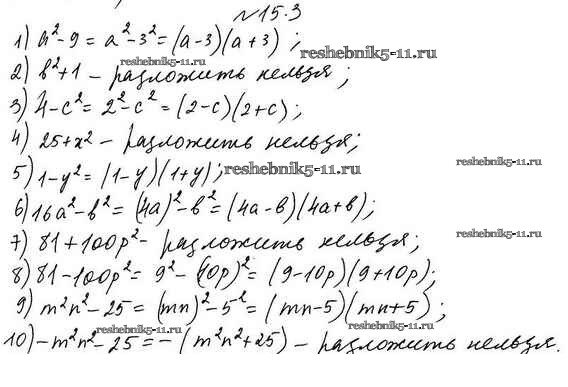 №15.3
1) a²-9 = a²-3² = (a-3)(a+3);
reshebnik5-11.ru
2) b²+1 – разложить нельзя;
reshebnik5-11.ru
3) 4-c² = 2²-c² = (2-c)(2+c);
reshebnik5-11.ru
4) 25+x² – разложить нельзя;
5) 1-y² = (1-y)(1+y);
reshebnik5-11.ru
reshebnik5-11.ru
6) 16a²-b² = (4a)²-b² = (4a-b)(4a+b);
7) 81+100p² - разложить нельзя;
reshebnik5-11.ru
8) 81-100p² = 9²-(10p)² = (9-10p)(9+10p);
reshebnik5-11.ru
9) m²n²-25 = (mn)²-5² = (mn-5)(mn+5);
reshebnik5-11.ru
10) -m²n²-25 = -(m²n²+25) – разложить нельзя.